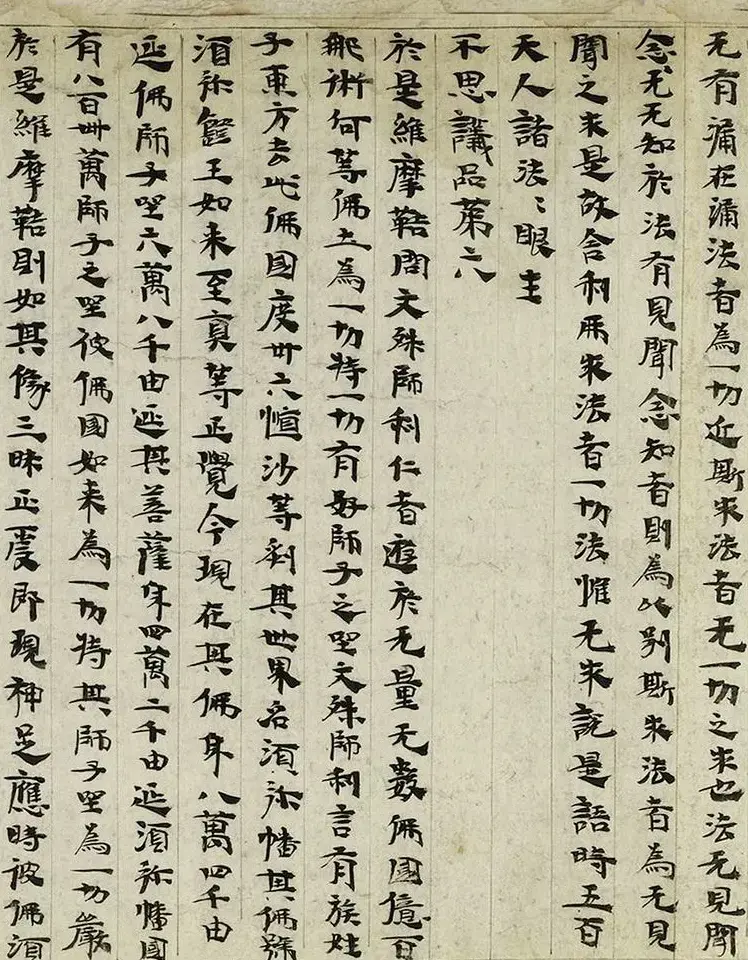 无有漏在漏法者為一切近斯求法者无一切之求也法无見聞
念无无知於法有見聞念知者則為以别斯求法者為无見
聞之求是故舍利弗求法者一切法惟无求說是語時五百
天人諸法〻眼生
不思議品第六
於是維摩鞊問文殊師利仁者遊於无量无數佛國億百
那術何等佛土為一切持一切有好師子之坐文殊師利言有族姓
子東方去此佛國度卅六恒沙等刹其世界名須弥幡其佛號
須弥鐙王如来至真等正覺今現在其佛身八萬四千由
延佛師子坐六萬八千由延其菩薩身四萬二千由延須弥幡國
有八百卌萬師子之坐彼佛國如来為一切持其師子坐為一切嚴
於是維摩鞊則如其像三昧正受即現神足應時彼佛須